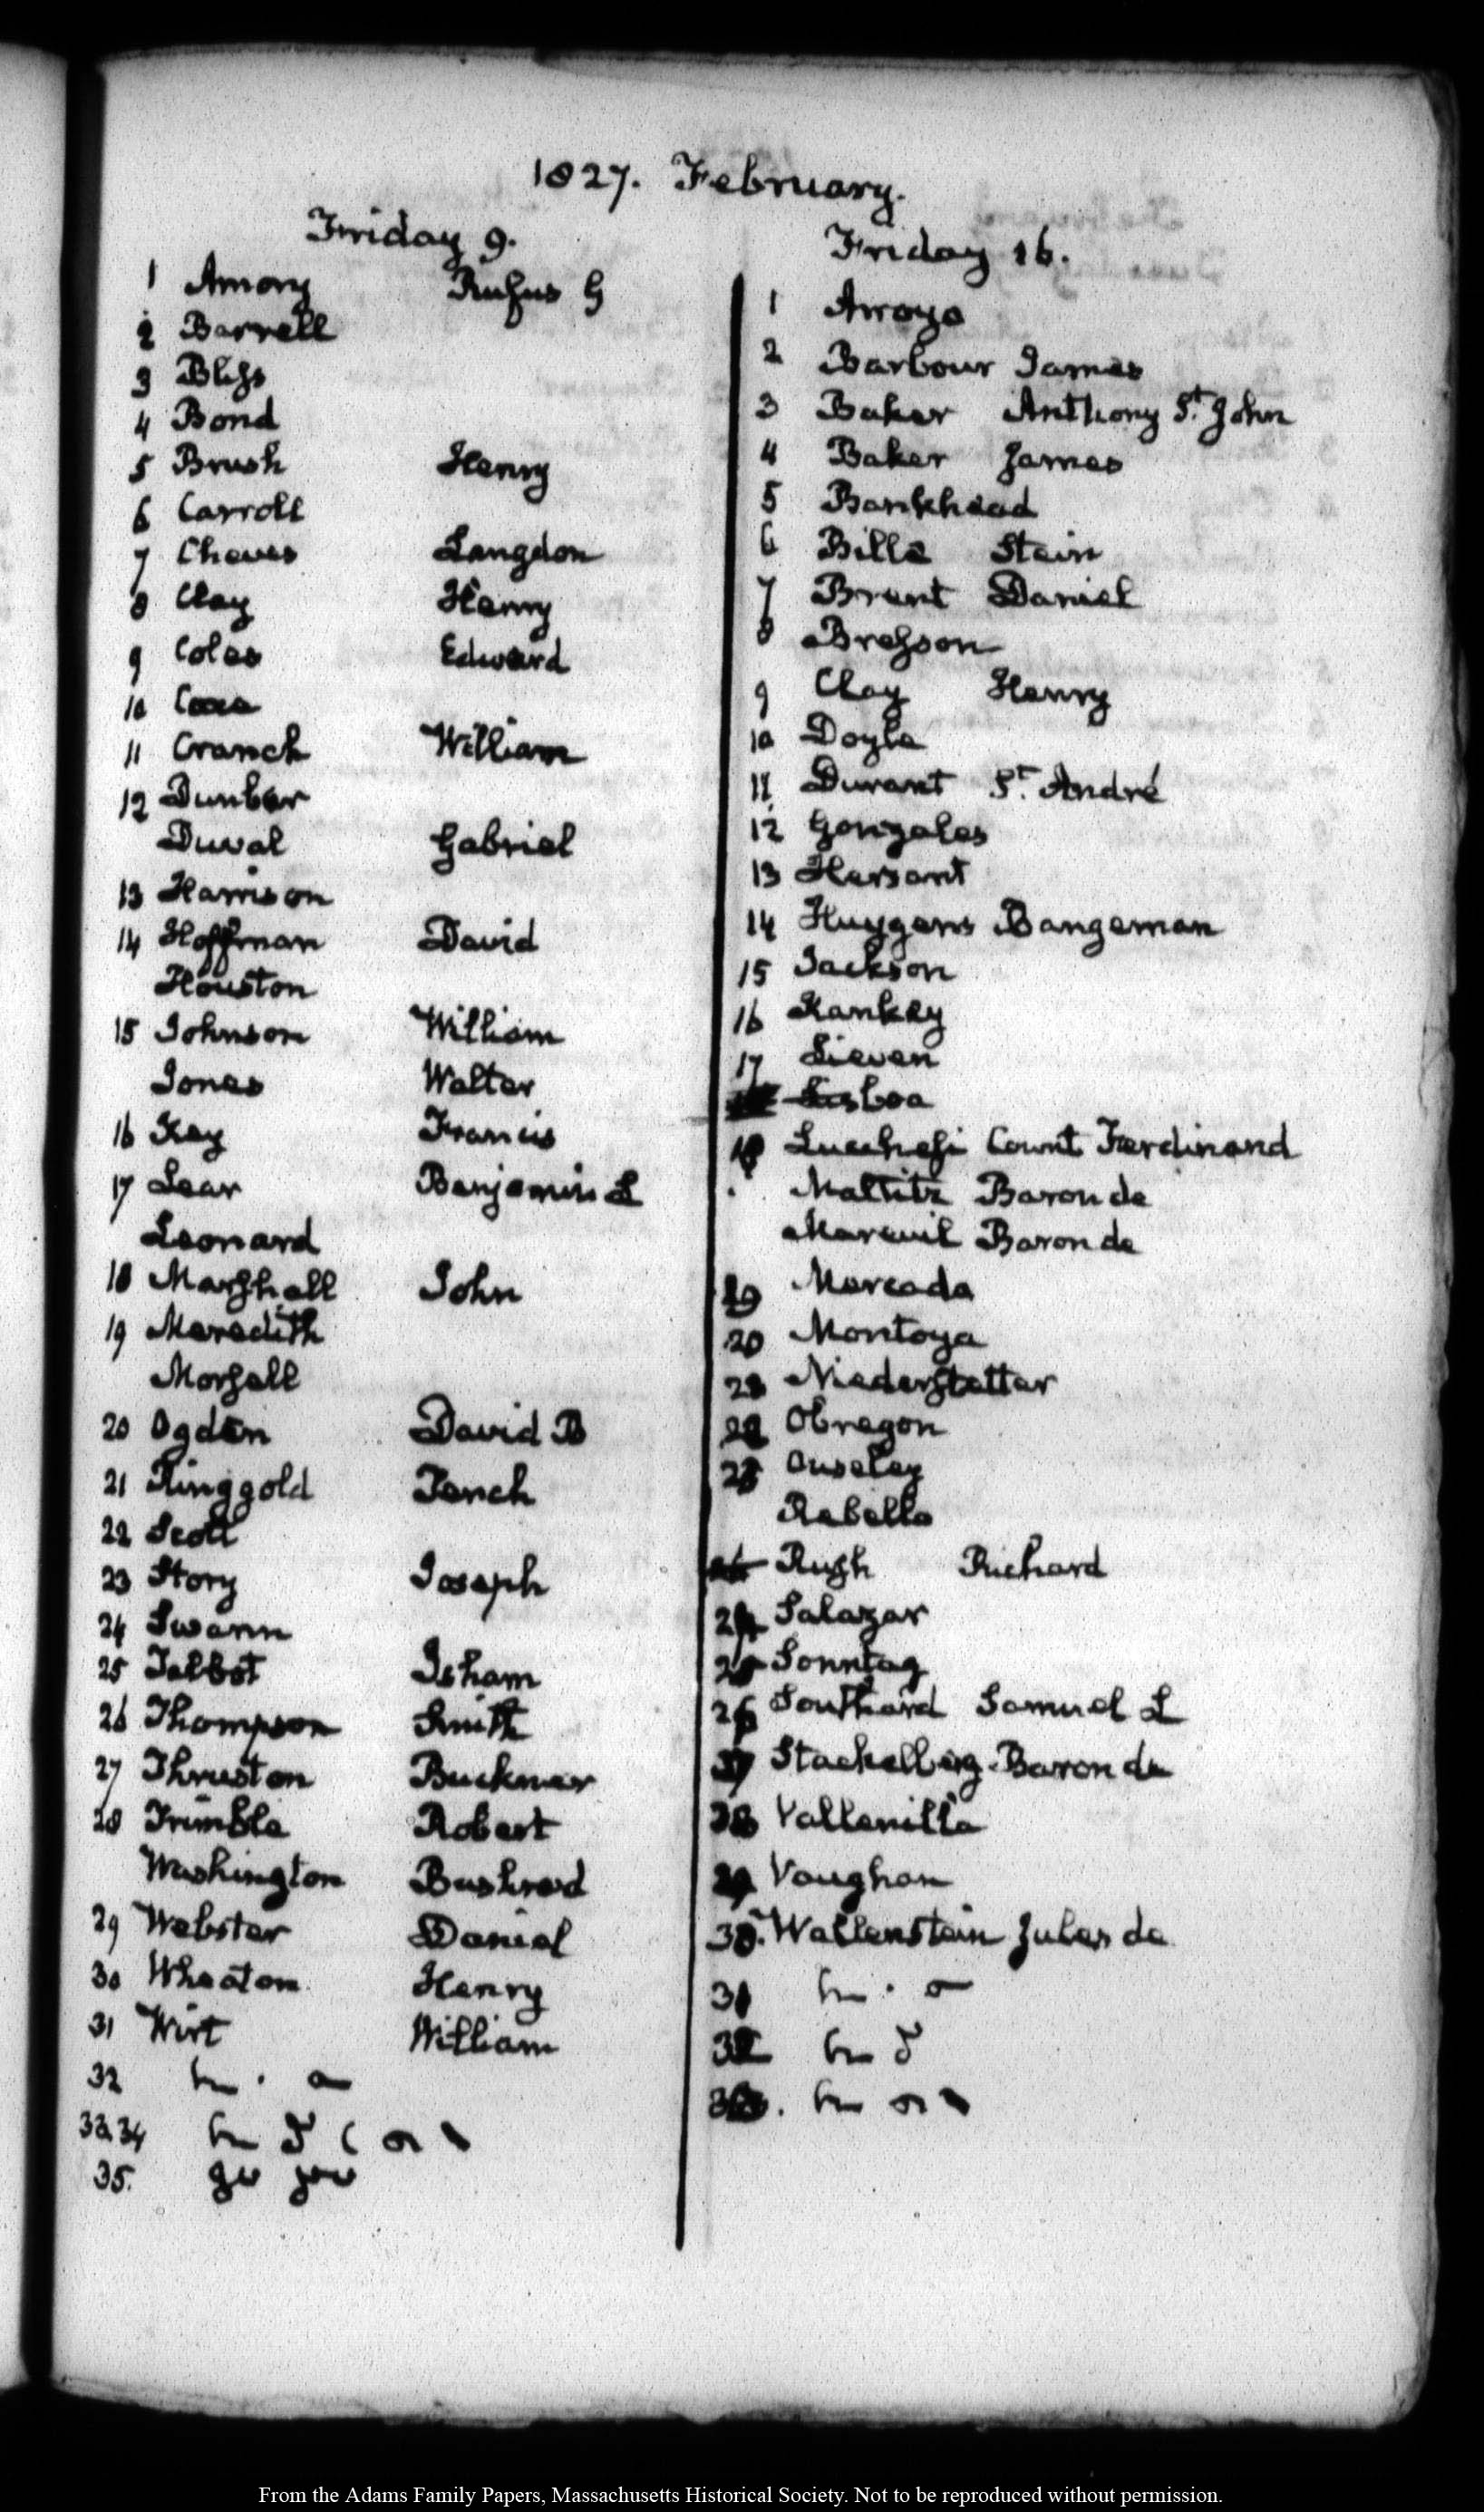 1827. February.
Friday 9.
1 Amory Rufus G
2 Barrell
3 Bliss
4 Bond
5 Brush Henry
6 Carroll
7 Cheves Langdon
8 Clay Henry
9 Coles Edward
10 Coxe
11 Cranch William
12 Dunbar
Duval Gabriel
13 Harrison
14 Hoffman David
Houston
15 Johnson William
Jones Walter
16 Key Francis
17 Lear Benjamin L
Leonard
18 Marshall John
19 Meredith
Morsell
20 Ogden David B
21 Ringgold Tench
22 Scott
23 Story Joseph
24 Swann
25 Talbot Isham
26 Thompson Smith
27 Thruston Buckner
28 Trimble Robert
Washington Bushrod
29 Webster Daniel
30 Wheaton Henry
31 Wirt William
32
33.34
35.
Friday 16.
1 Arroyo
2 Barbour James
3 Baker Anthony St. John
4 Baker James
5 Bankhead
6 Bille Stein
7 Brent Daniel
8 Bresson
9 Clay Henry
10 Doyle
11 Durant St. André
12 Gonzales
13 Hersant
14 Huygens Bangeman
15 Jackson
16 Kankey
17 Lieven
Lisboa
18 Lucchesi Count Ferdinand
Maltitz Baron de
Mareuil Baron de
19 Mercado
20 Montoya
21 Niederstetter
22 Obregon
23 Ouseley
Rebello
Rush Richard
24 Salazar
25 Sonntag
26 Southard Samuel L
27 Stackelberg Baron de
28 Vallenilla
29 Vaughan
30. Wallenstein Jules de
31
32
33.
From the Adams Family Papers, Massachusetts Historical Society. Not to be reproduced without permission.